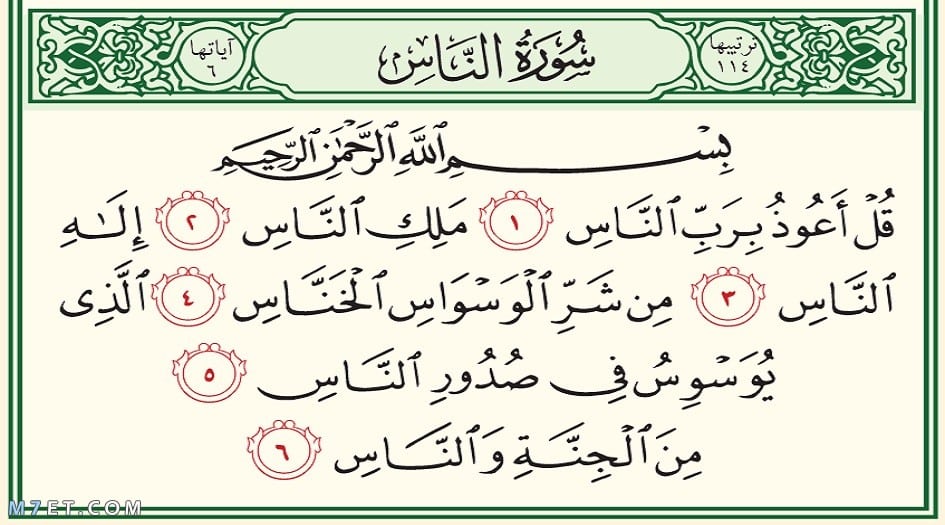 ترتيبها ١١٤
سُورَةُ النَّاسِ
آياتها ٦
بِسْمِ ٱللَّهِ ٱلرَّحْمَٰنِ ٱلرَّحِيمِ
قُلْ أَعُوذُ بِرَبِّ ٱلنَّاسِ ١ مَلِكِ ٱلنَّاسِ ٢ إِلَٰهِ
ٱلنَّاسِ ٣ مِن شَرِّ ٱلْوَسْوَاسِ ٱلْخَنَّاسِ ٤ ٱلَّذِى
يُوَسْوِسُ فِى صُدُورِ ٱلنَّاسِ ٥
مِنَ ٱلْجِنَّةِ وَٱلنَّاسِ ٦
M7ET.COM